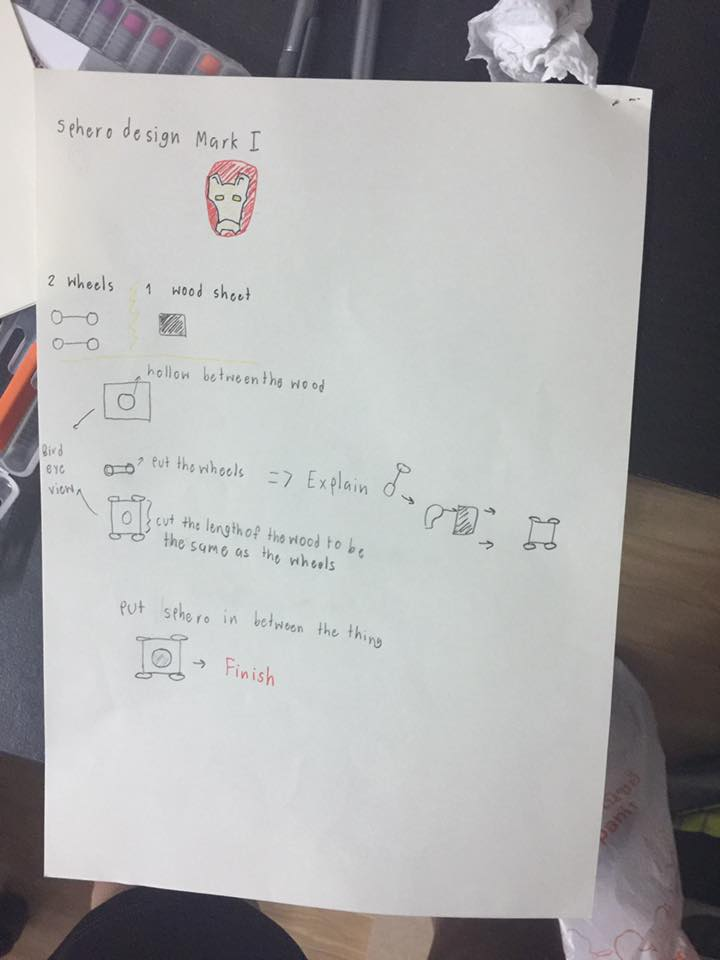 Sphero design Mark I
2 wheels
1 wood sheet
hollow between the wood
Bird
eye
view
put the wheels => Explain
cut the length of the wood to be
the same as the wheels
put sphero in between the thing
Finish